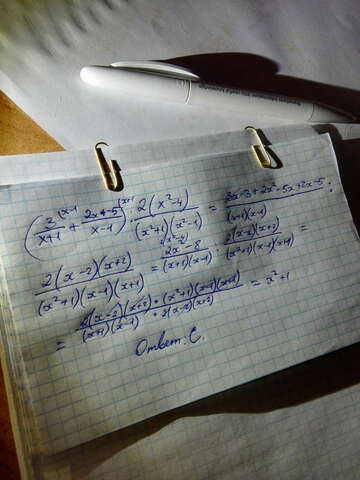 (3/x+1 |x-1 + 2x-5/x-1 |x+1) : 2(x²-4)/(x²+1)(x²-1) = 3x-3+2x²-5x+2x-5/(x+1)(x-1) :
2(x-2)(x+2)/(x²+1)(x-1)(x+1) = 2x²-8/(x+1)(x-1) : 2(x-2)(x+2)/(x²+1)(x-1)(x+1) =
= 2(x-2)(x+2)·(x²+1)(x-1)(x+1)/(x+1)(x-1)·2(x-2)(x+2) = x²+1
Ответ: C.